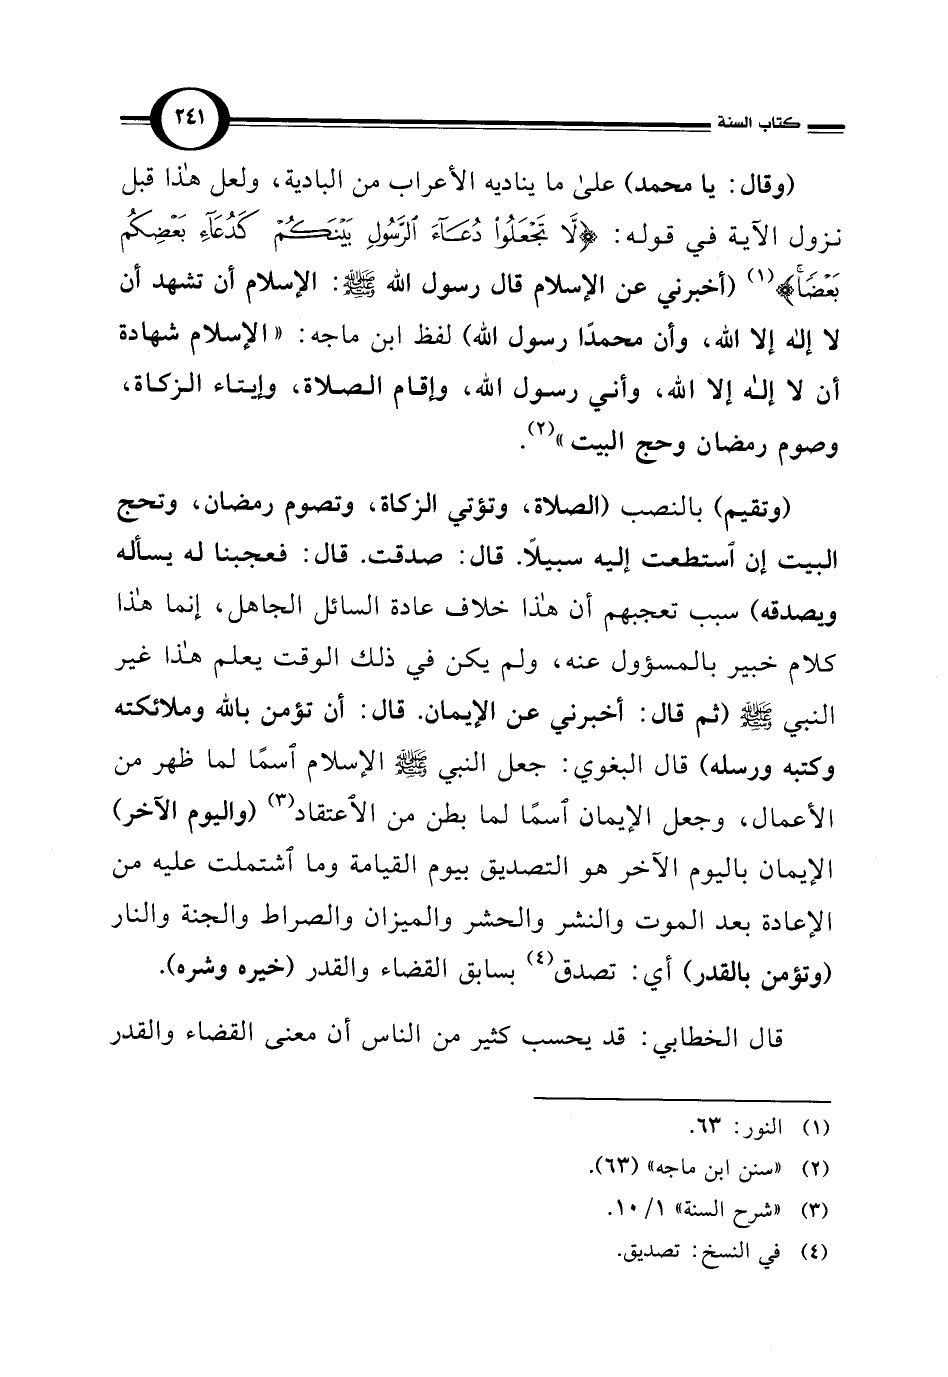 كتاب السنة ٢٤١
(وقال: يا محمد) علىٰ ما يناديه الأعراب من البادية، ولعل هذٰا قبل
نزول الآية في قوله: ﴿لَّا تَجْعَلُوا۟ دُعَآءَ ٱلرَّسُولِ بَيْنَكُمْ كَدُعَآءِ بَعْضِكُم
بَعْضًاۚ﴾(١) (أخبرني عن الإسلام قال رسول الله ﷺ: الإسلام أن تشهد أن
لا إلٰه إلا الله، وأن محمدًا رسول الله) لفظ ابن ماجه: «الإسلام شهادة
أن لا إلٰه إلا الله، وأني رسول الله، وإقام الصلاة، وإيتاء الزكاة،
وصوم رمضان وحج البيت»(٢).
(وتقيم) بالنصب (الصلاة، وتؤتي الزكاة، وتصوم رمضان، وتحج
البيت إن ٱستطعت إليه سبيلًا. قال: صدقت. قال: فعجبنا له يسأله
ويصدقه) سبب تعجبهم أن هذٰا خلاف عادة السائل الجاهل، إنما هذٰا
كلام خبير بالمسؤول عنه، ولم يكن في ذلك الوقت يعلم هذٰا غير
النبي ﷺ (ثم قال: أخبرني عن الإيمان. قال: أن تؤمن بالله وملائكته
وكتبه ورسله) قال البغوي: جعل النبي ﷺ الإسلام ٱسمًا لما ظهر من
الأعمال، وجعل الإيمان ٱسمًا لما بطن من الٱعتقاد(٣) (واليوم الآخر)
الإيمان باليوم الآخر هو التصديق بيوم القيامة وما ٱشتملت عليه من
الإعادة بعد الموت والنشر والحشر والميزان والصراط والجنة والنار
(وتؤمن بالقدر) أي: تصدق(٤) بسابق القضاء والقدر (خيره وشره).
قال الخطابي: قد يحسب كثير من الناس أن معنى القضاء والقدر
(١) النور: ٦٣.
(٢) «سنن ابن ماجه» (٦٣).
(٣) «شرح السنة» ١/ ١٠.
(٤) في النسخ: تصديق.